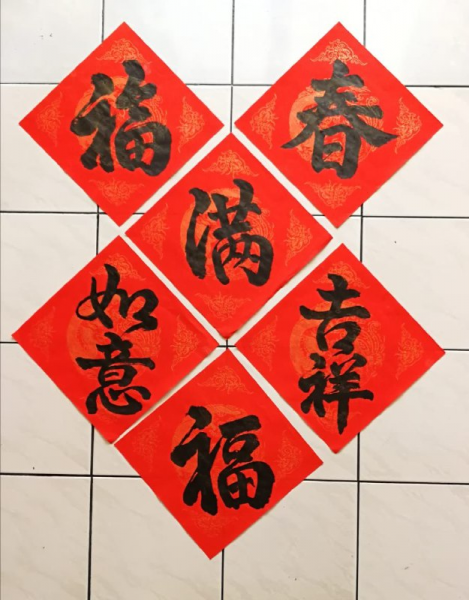 福
春
满
如意
吉祥
福